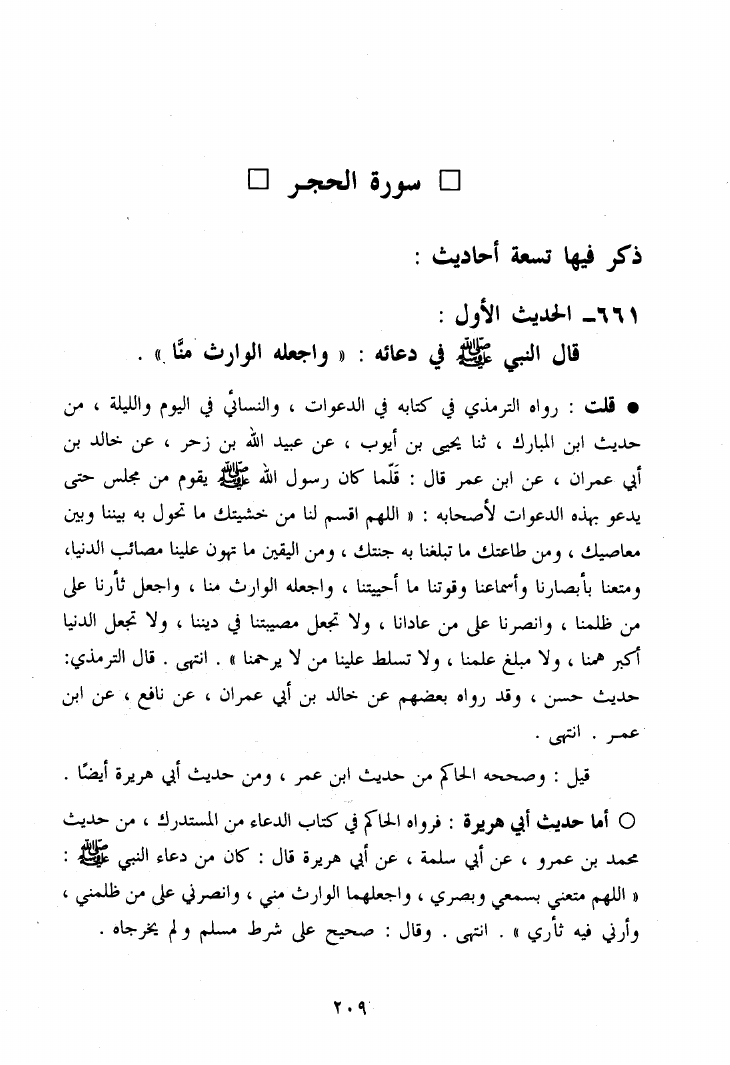 □ سورة الحجر □
ذكر فيها تسعة أحاديث :
٦٦١ـ الحديث الأول :
قال النبي ﷺ في دعائه : « واجعله الوارث منَّا » .
● قلت : رواه الترمذي في كتابه في الدعوات ، والنسائي في اليوم والليلة ، من
حديث ابن المبارك ، ثنا يحيى بن أيوب ، عن عبيد الله بن زحر ، عن خالد بن
أبي عمران ، عن ابن عمر قال : قَلَّما كان رسول الله ﷺ يقوم من مجلس حتى
يدعو بهذه الدعوات لأصحابه : « اللهم اقسم لنا من خشيتك ما تحول به بيننا وبين
معاصيك ، ومن طاعتك ما تبلغنا به جنتك ، ومن اليقين ما تهون علينا مصائب الدنيا،
ومتعنا بأبصارنا وأسماعنا وقوتنا ما أحييتنا ، واجعله الوارث منا ، واجعل ثأرنا على
من ظلمنا ، وانصرنا على من عادانا ، ولا تجعل مصيبتنا في ديننا ، ولا تجعل الدنيا
أكبر همنا ، ولا مبلغ علمنا ، ولا تسلط علينا من لا يرحمنا » . انتهى . قال الترمذي:
حديث حسن ، وقد رواه بعضهم عن خالد بن أبي عمران ، عن نافع ، عن ابن
عمـر . انتهى .
قيل : وصححه الحاكم من حديث ابن عمر ، ومن حديث أبي هريرة أيضًا .
○ أما حديث أبي هريرة : فرواه الحاكم في كتاب الدعاء من المستدرك ، من حديث
محمد بن عمرو ، عن أبي سلمة ، عن أبي هريرة قال : كان من دعاء النبي ﷺ :
« اللهم متعني بسمعي وبصري ، واجعلهما الوارث مني ، وانصرني على من ظلمني ،
وأرني فيه ثأري » . انتهى . وقال : صحيح على شرط مسلم ولم يخرجاه .
٢٠٩